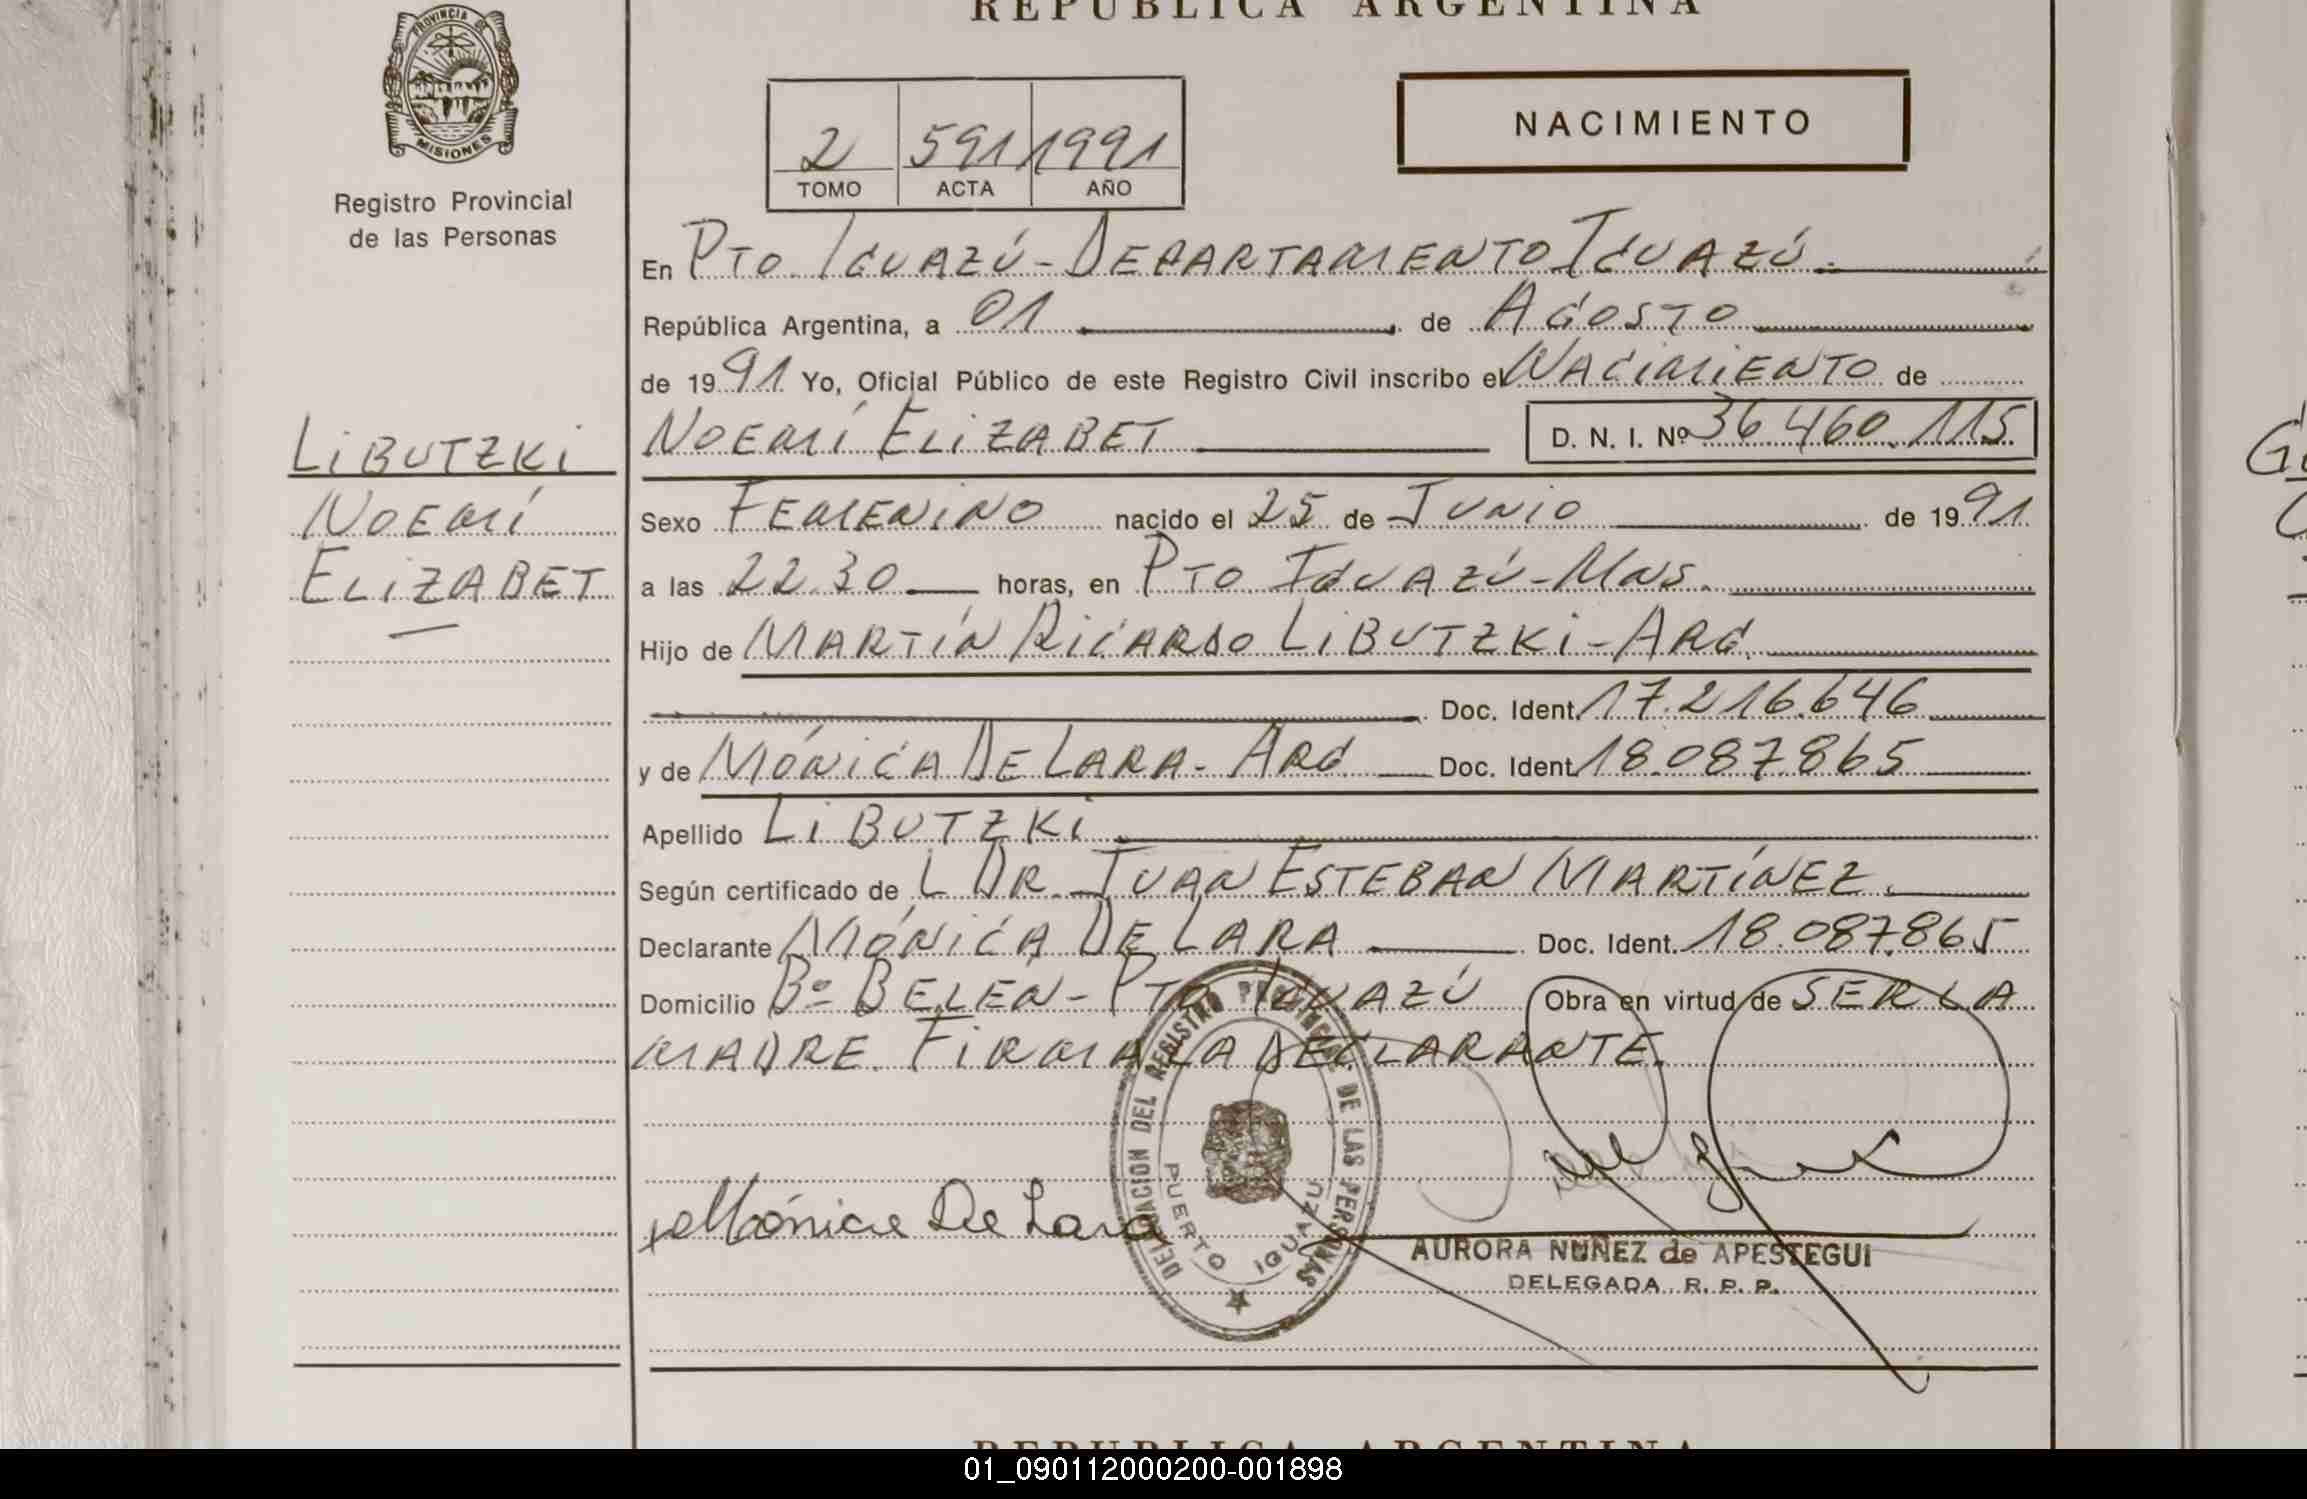 REPUBLICA ARGENTINA
PROVINCIA DE
MISIONES
Registro Provincial
de las Personas
2 591 1991
TOMO ACTA AÑO
NACIMIENTO
En PTO. IGUAZÚ - DEPARTAMENTO IGUAZÚ.
República Argentina, a 01 de AGOSTO
de 1991 Yo, Oficial Público de este Registro Civil inscribo el NACIMIENTO de
NOEMÍ ELIZABET D. N. I. Nº 36.460.115
LIBUTZKI
NOEMÍ
ELIZABET
Sexo FEMENINO nacido el 25 de JUNIO de 1991
a las 22.30 horas, en PTO IGUAZÚ - MNS.
Hijo de MARTÍN RICARDO LIBUTZKI - ARG.
Doc. Ident. 17.216.646
y de MÓNICA DE LARA - ARG Doc. Ident. 18.087.865
Apellido LIBUTZKI
Según certificado de L DR. JUAN ESTEBAN MARTÍNEZ.
Declarante MÓNICA DE LARA Doc. Ident. 18.087.865
Domicilio Bº BELÉN - PTO IGUAZÚ Obra en virtud de SER LA
MADRE. FIRMA LA DECLARANTE.
DELEGACION DEL REGISTRO PROVINCIAL DE LAS PERSONAS
PUERTO IGUAZU
Mónica De Lara
AURORA NUÑEZ de APESTEGUI
DELEGADA R. P. P.
REPUBLICA ARGENTINA
01_090112000200-001898